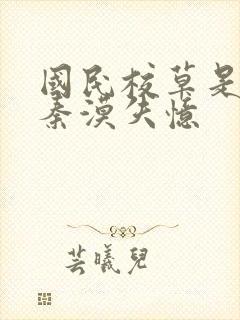 國民校草是
秦漠失憶
芸曦兒